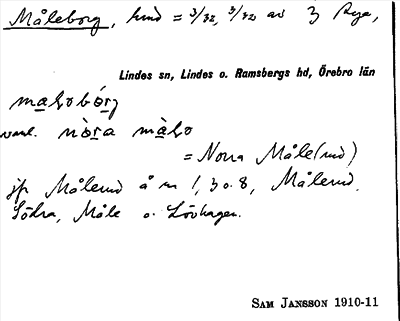 Måleborg, hmd = 3/32, 3/32 av 3 Rya,
Lindes sn, Lindes o. Ramsbergs hd, Örebro län
nòra
= Norra Måle(rud)
jfr Målerud å nr 1, 3 o. 8, Målerud,
Södra, Måle o. Lövhagen.
SAM JANSSON 1910-11